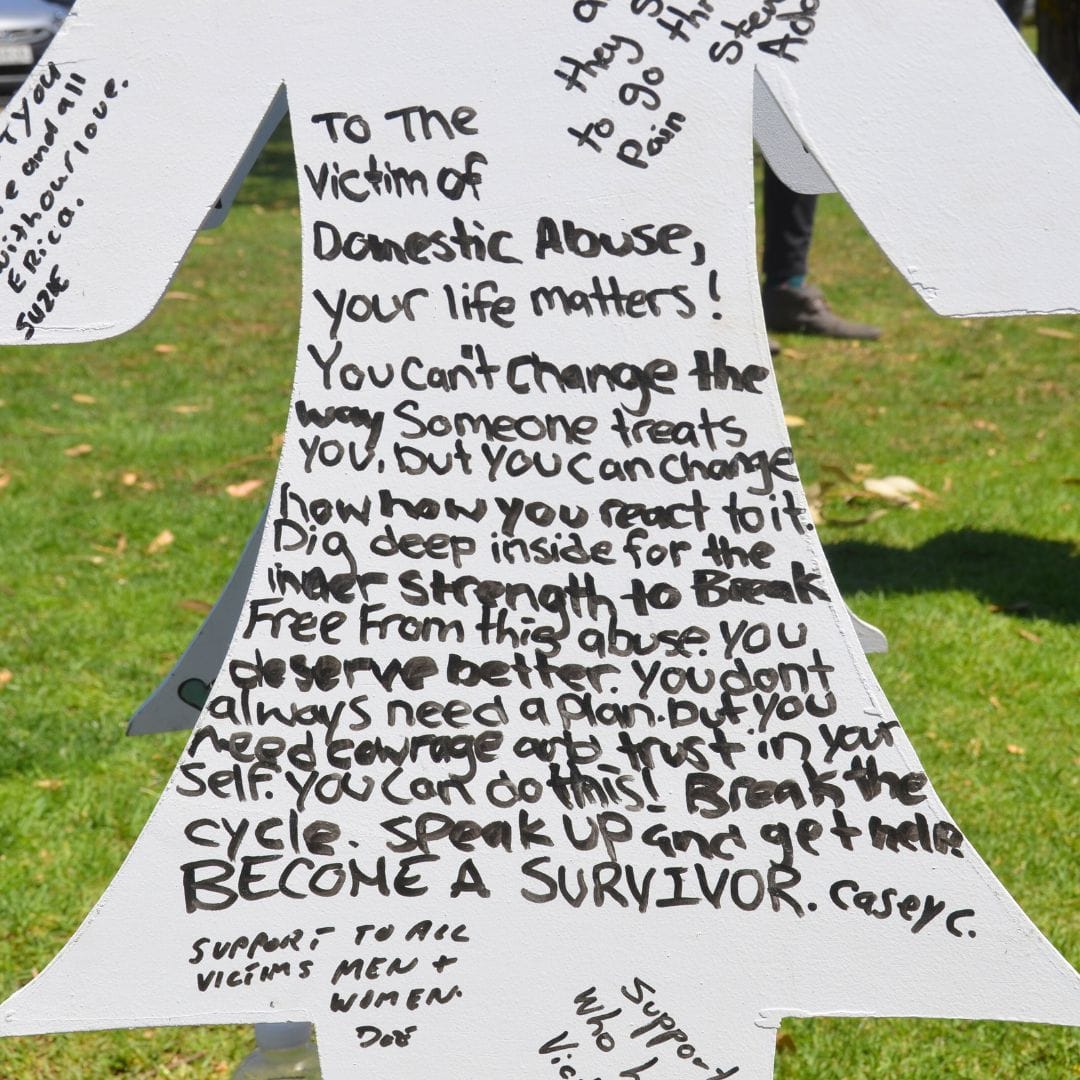 they
to go
Pain
thr
Ste
Ado
TYOU
e and all
withour love.
ERica.
SUZIE
To The
Victim of
Domestic Abuse,
your life matters!
You can't change the
way someone treats
you, but you can change
how how you react to it.
Dig deep inside for the
inner strength to Break
Free From this abuse. you
deserve better. you dont
always need a plan. but you
need courage and trust in your
self. you can do this! Break the
cycle. speak up and get help.
BECOME A SURVIVOR. Casey C.
SUPPORT TO ALL
VICTIMS MEN +
WOMEN.
Support
Who h
Vic